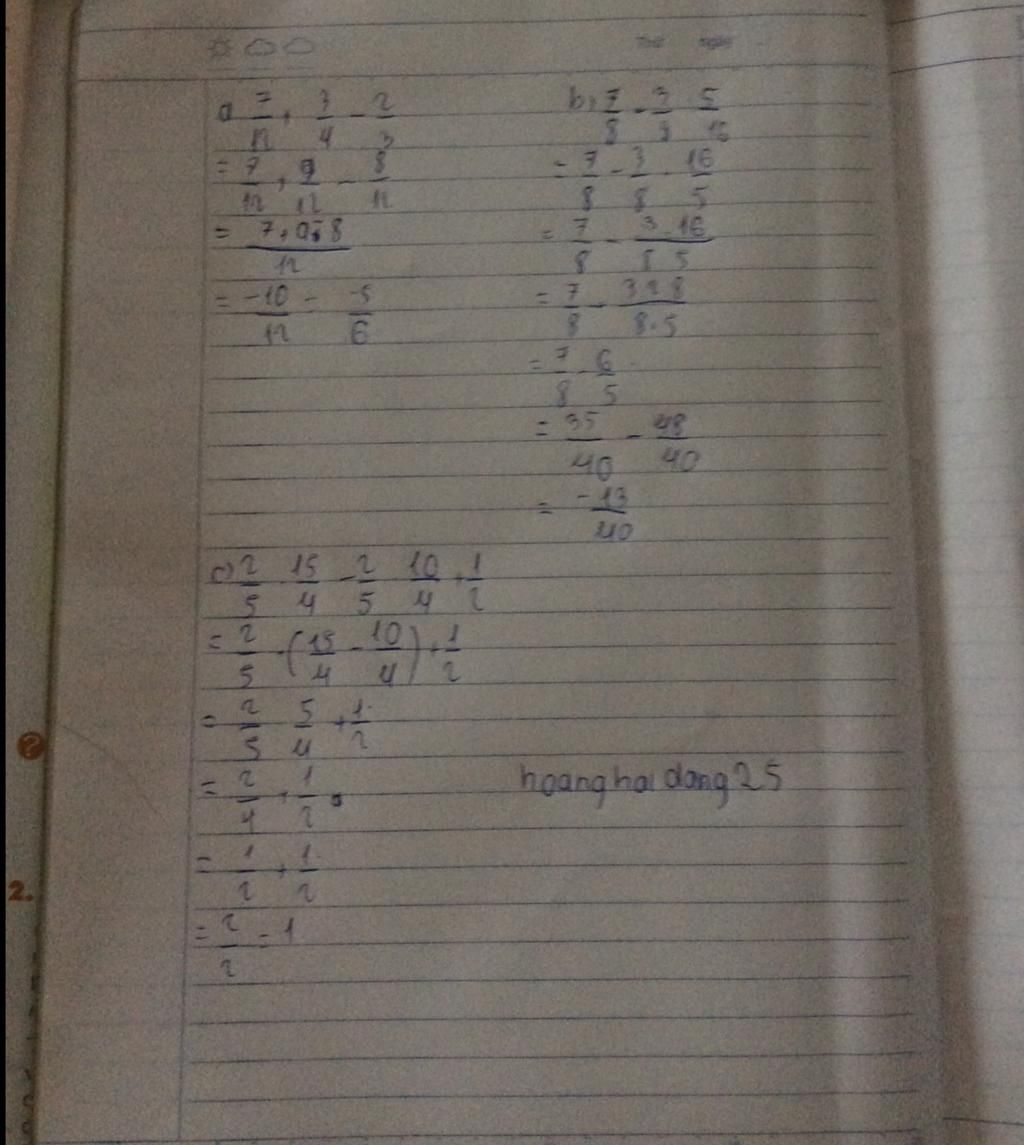 a) 7/12 + 3/4 - 2/3
= 7/12 + 9/12 - 8/12
= 7+9-8/12
= -10/12 = -5/6
b) 7/8 - 3/8 : 5/16
= 7/8 - 3/8 · 16/5
= 7/8 - 3·16/8·5
= 7/8 - 3·2·8/8·5
= 7/8 - 6/5
= 35/40 - 48/40
= -13/40
c) 2/5 · 15/4 - 2/5 · 10/4 + 1/2
= 2/5 · (15/4 - 10/4) + 1/2
= 2/5 · 5/4 + 1/2
= 2/4 + 1/2
= 1/2 + 1/2
= 2/2 = 1
hoanghaidang25
2.